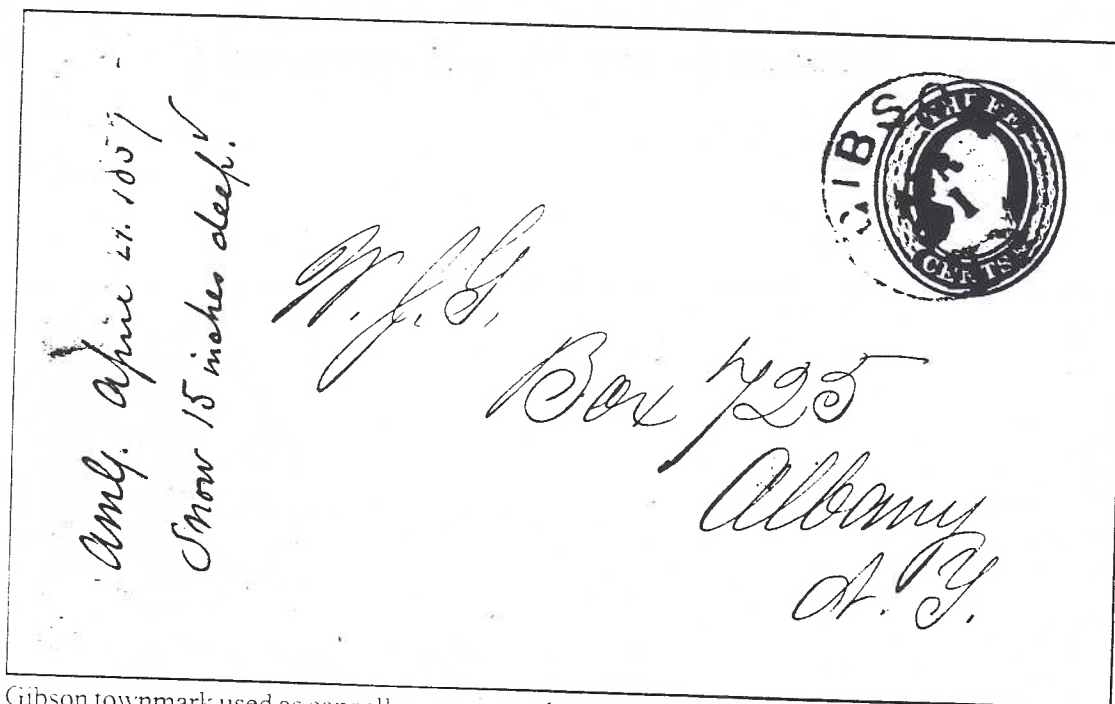 Amg. April 21. 1857
Snow 15 inches deep.
GIBSO
THREE
CENTS
W. J. G.
Box 725
Albany
N. Y.
Gibson townmark used as